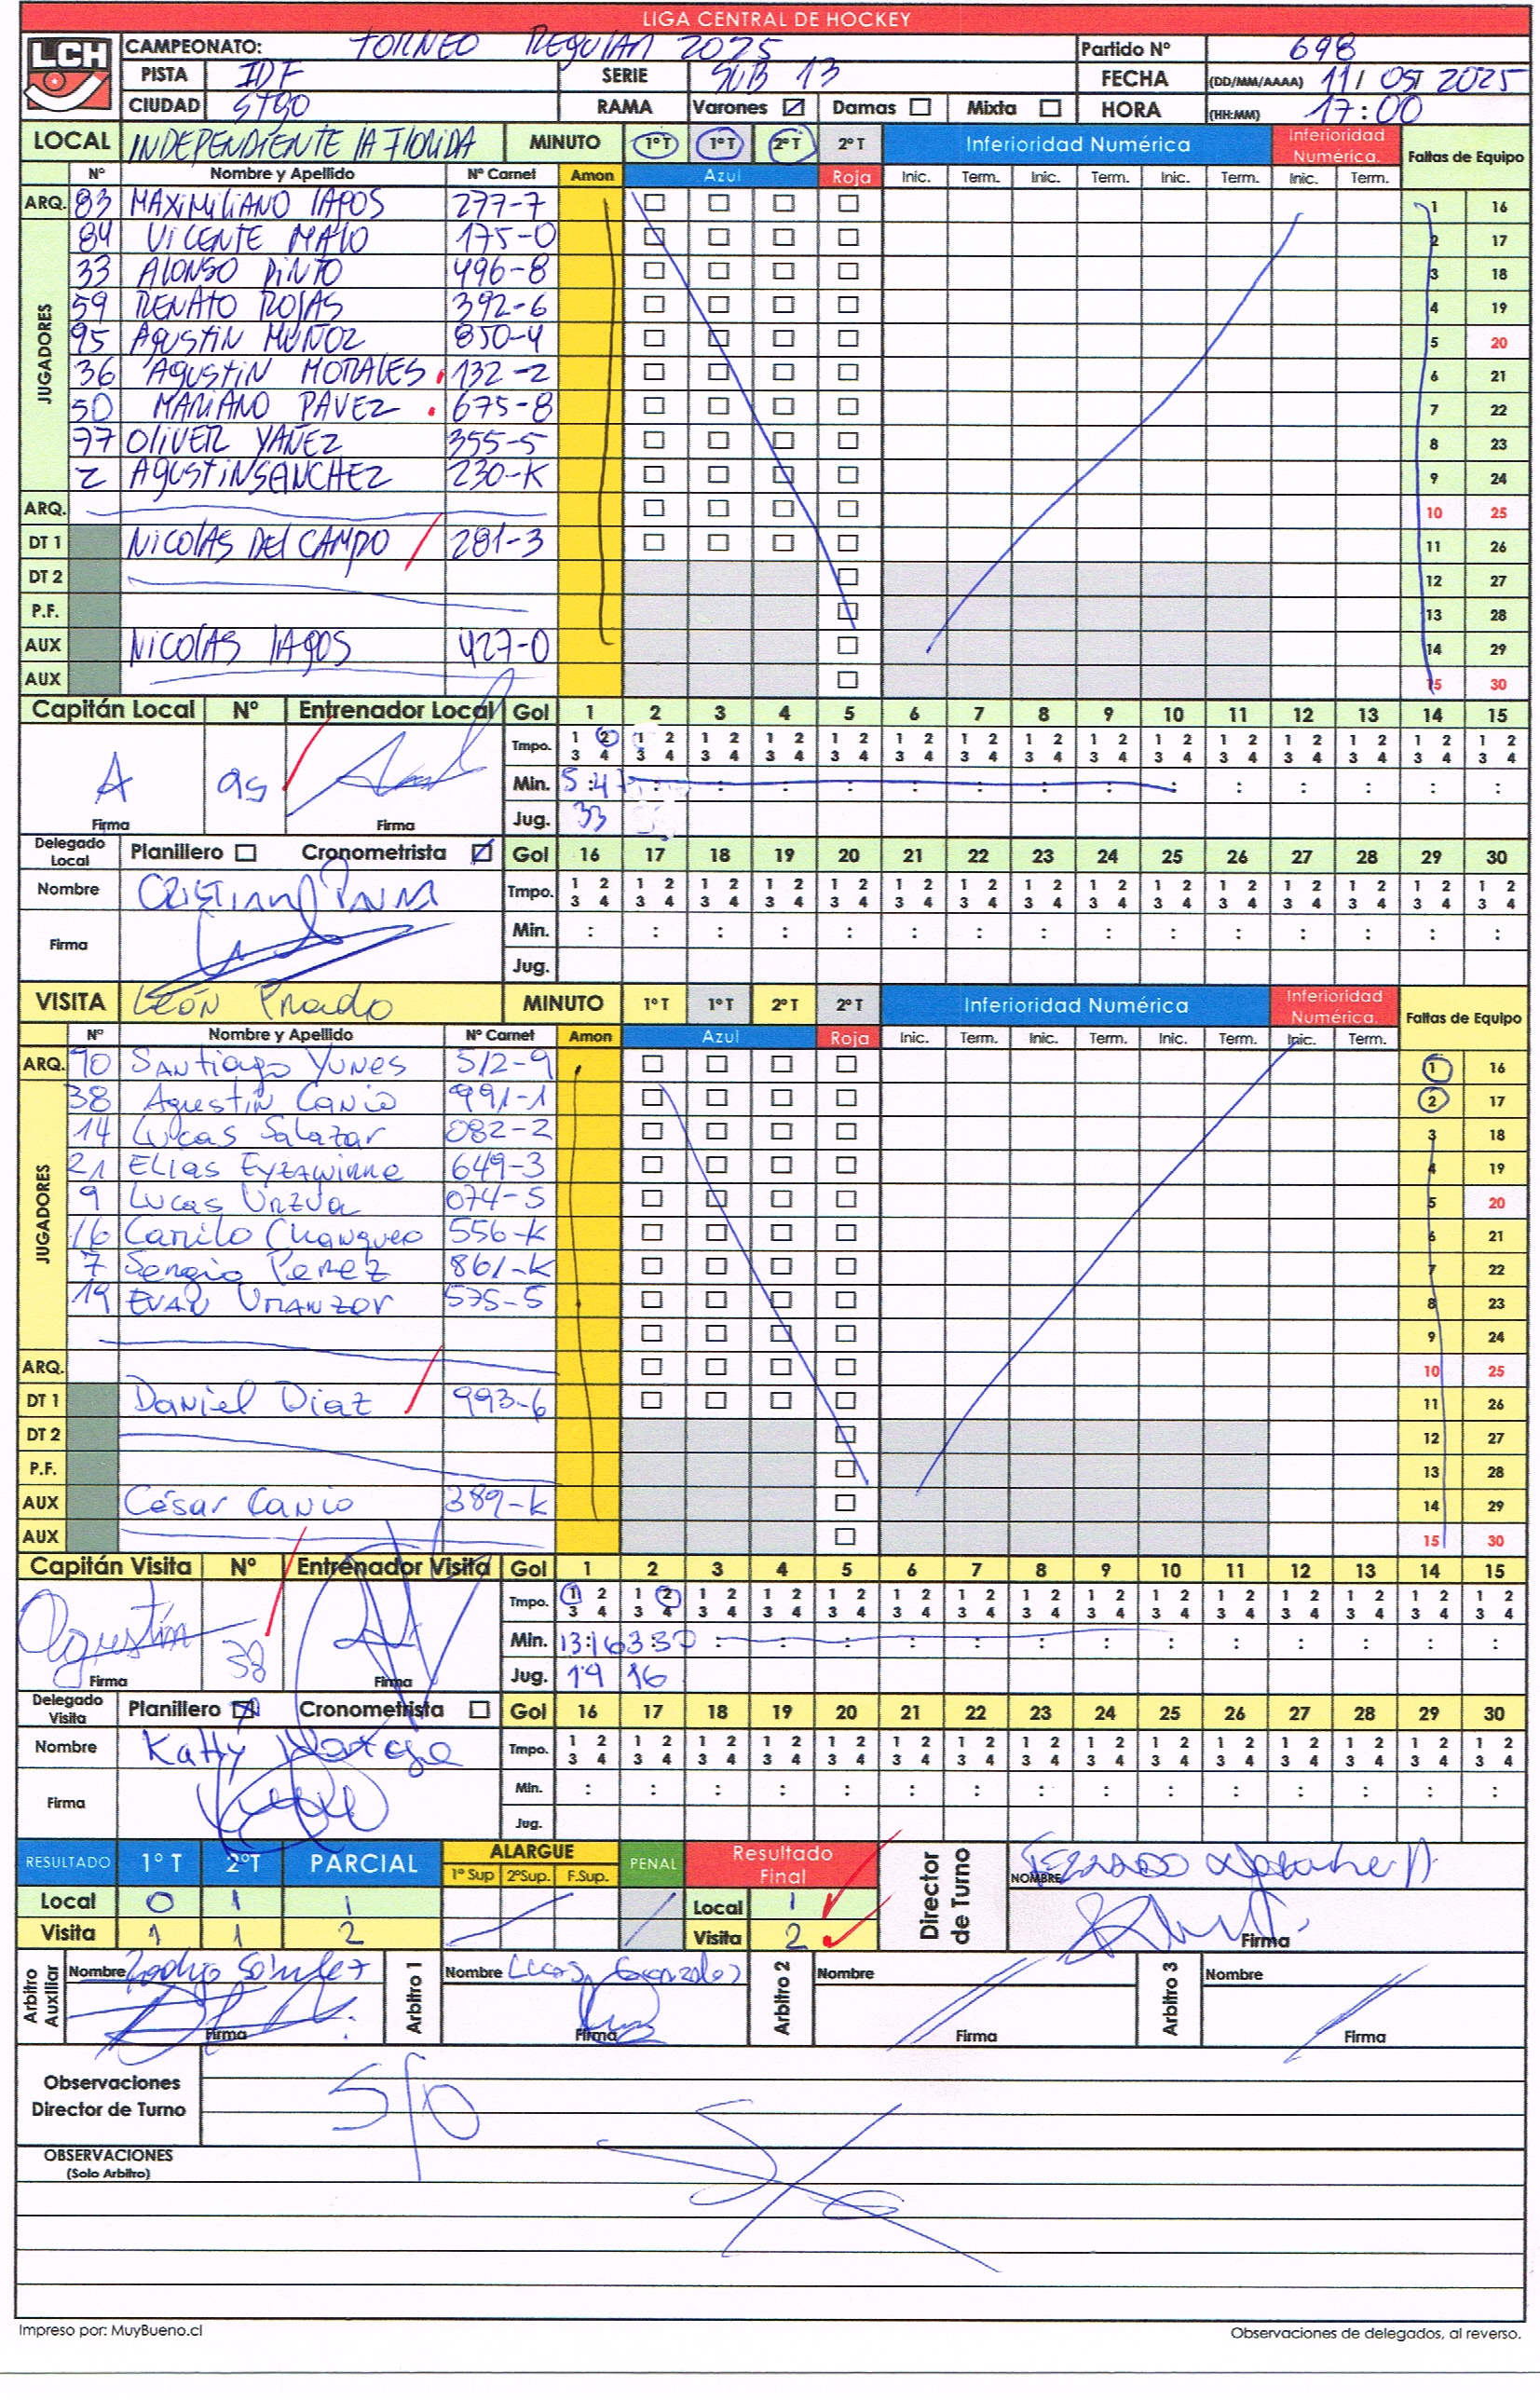 LIGA CENTRAL DE HOCKEY
LCH
CAMPEONATO: TORNEO REGULAR 2025 Partido Nº 698
PISTA IDF SERIE SUB 13 FECHA (DD/MM/AAAA) 11/ OST 2025
CIUDAD STGO RAMA Varones Damas Mixta HORA (HH:MM) 17:00
LOCAL INDEPENDIENTE LA FLORIDA MINUTO 1º T 1º T 2º T 2º T Inferioridad Numérica Inferioridad Numérica. Faltas de Equipo
Nº Nombre y Apellido Nº Carnet Amon Azul Roja Inic. Term. Inic. Term. Inic. Term. Inic. Term.
ARQ. 83 MAXIMILIANO LAGOS 277-7 1 16
JUGADORES
84 VICENTE MALO 175-0 2 17
33 ALONSO PINTO 496-8 3 18
59 RENATO ROJAS 392-6 4 19
95 AGUSTIN MUÑOZ 850-4 5 20
36 AGUSTIN MORALES 132-2 6 21
50 MARIANO PAVEZ 675-8 7 22
77 OLIVER YAÑEZ 355-5 8 23
2 AGUSTIN SANCHEZ 230-K 9 24
ARQ. 10 25
DT 1 NICOLAS DEL CAMPO 281-3 11 26
DT 2 12 27
P.F. 13 28
AUX NICOLAS LAGOS 427-0 14 29
AUX 15 30
Capitán Local Nº Entrenador Local Gol 1 2 3 4 5 6 7 8 9 10 11 12 13 14 15
Tmpo. 1 2 1 2 1 2 1 2 1 2 1 2 1 2 1 2 1 2 1 2 1 2 1 2 1 2 1 2 1 2
3 4 3 4 3 4 3 4 3 4 3 4 3 4 3 4 3 4 3 4 3 4 3 4 3 4 3 4 3 4
A 95 Min. : : : : : : : : : : : : : :
Firma Firma Jug. 33
Delegado Local Planillero Cronometrista Gol 16 17 18 19 20 21 22 23 24 25 26 27 28 29 30
Nombre CRISTIAN PALMA Tmpo. 1 2 1 2 1 2 1 2 1 2 1 2 1 2 1 2 1 2 1 2 1 2 1 2 1 2 1 2 1 2
3 4 3 4 3 4 3 4 3 4 3 4 3 4 3 4 3 4 3 4 3 4 3 4 3 4 3 4 3 4
Firma Min. : : : : : : : : : : : : : : :
Jug.
VISITA León Prado MINUTO 1º T 1º T 2º T 2º T Inferioridad Numérica Inferioridad Numérica. Faltas de Equipo
Nº Nombre y Apellido Nº Carnet Amon Azul Roja Inic. Term. Inic. Term. Inic. Term. Inic. Term.
ARQ. 90 Santiago Yunes 512-9 1 16
JUGADORES
38 Agustin Canio 991-1 2 17
14 Lucas Salazar 082-2 3 18
21 Elias Eyzaguirre 649-3 4 19
9 Lucas Urzua 074-5 5 20
16 Camilo Chanqueo 556-K 6 21
7 Sergio Perez 861-K 7 22
19 Evan Umanzor 575-5 8 23
9 24
ARQ. 10 25
DT 1 Daniel Diaz 993-6 11 26
DT 2 12 27
P.F. 13 28
AUX César Canio 389-K 14 29
AUX 15 30
Capitán Visita Nº Entrenador Visita Gol 1 2 3 4 5 6 7 8 9 10 11 12 13 14 15
Tmpo. 1 2 1 2 1 2 1 2 1 2 1 2 1 2 1 2 1 2 1 2 1 2 1 2 1 2 1 2 1 2
3 4 3 4 3 4 3 4 3 4 3 4 3 4 3 4 3 4 3 4 3 4 3 4 3 4 3 4 3 4
Agustín 38 Min. 13:16 3:30 : : : : : : : : : : : : :
Firma Firma Jug. 19 16
Delegado Visita Planillero Cronometrista Gol 16 17 18 19 20 21 22 23 24 25 26 27 28 29 30
Nombre Katty Tmpo. 1 2 1 2 1 2 1 2 1 2 1 2 1 2 1 2 1 2 1 2 1 2 1 2 1 2 1 2 1 2
3 4 3 4 3 4 3 4 3 4 3 4 3 4 3 4 3 4 3 4 3 4 3 4 3 4 3 4 3 4
Firma Min. : : : : : : : : : : : : : : :
Jug.
RESULTADO 1º T 2º T PARCIAL ALARGUE 1º Sup 2ºSup. F.Sup. PENAL Resultado Final Director de Turno NOMBRE
Local 0 1 1 Local 1
Visita 1 1 2 Visita 2 Firma
Arbitro Auxiliar Nombre Arbitro 1 Nombre Lucas Gonzalez Arbitro 2 Nombre Arbitro 3 Nombre
Firma Firma Firma Firma
Observaciones Director de Turno S/O
OBSERVACIONES
(Solo Arbitro)
Impreso por: MuyBueno.cl Observaciones de delegados, al reverso.